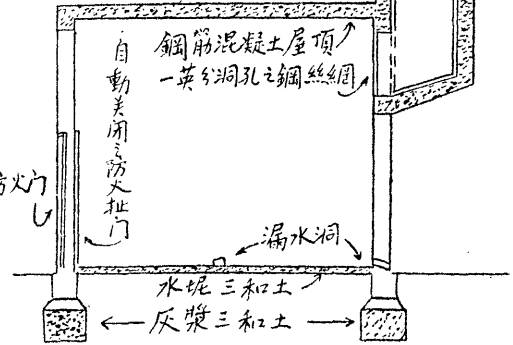 鋼筋混凝土屋頂
一英分洞孔之鋼絲網
自動关闭之防火扯门
防火门
漏水洞
水坭三和土
灰漿三和土